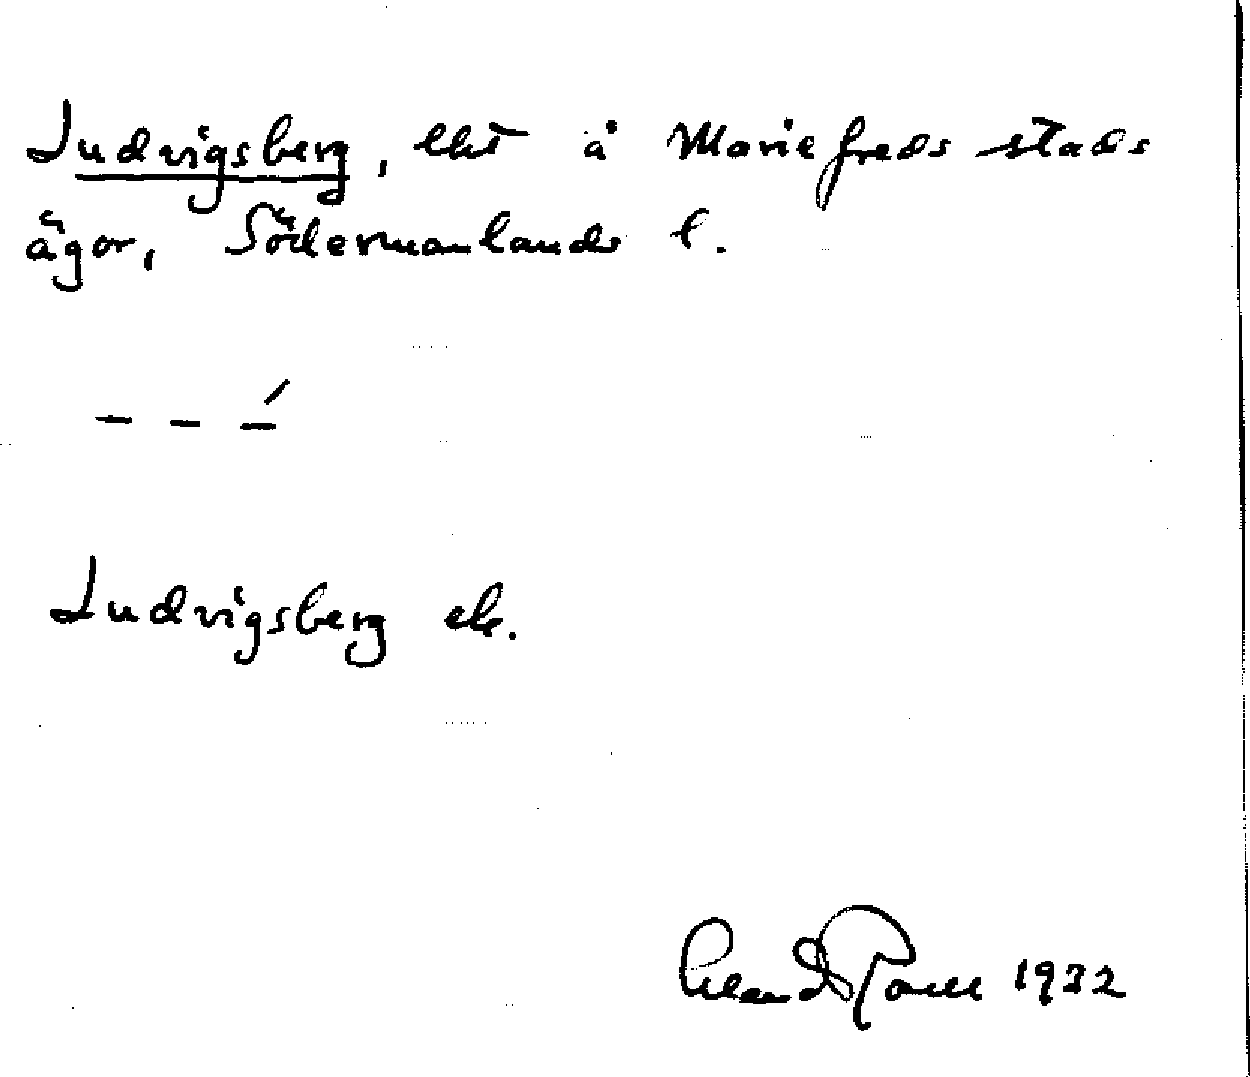 Ludvigsberg, lht å Mariefreds stads
ägor, Södermanlands l.
– – –́
Ludvigsberg ek.
1932